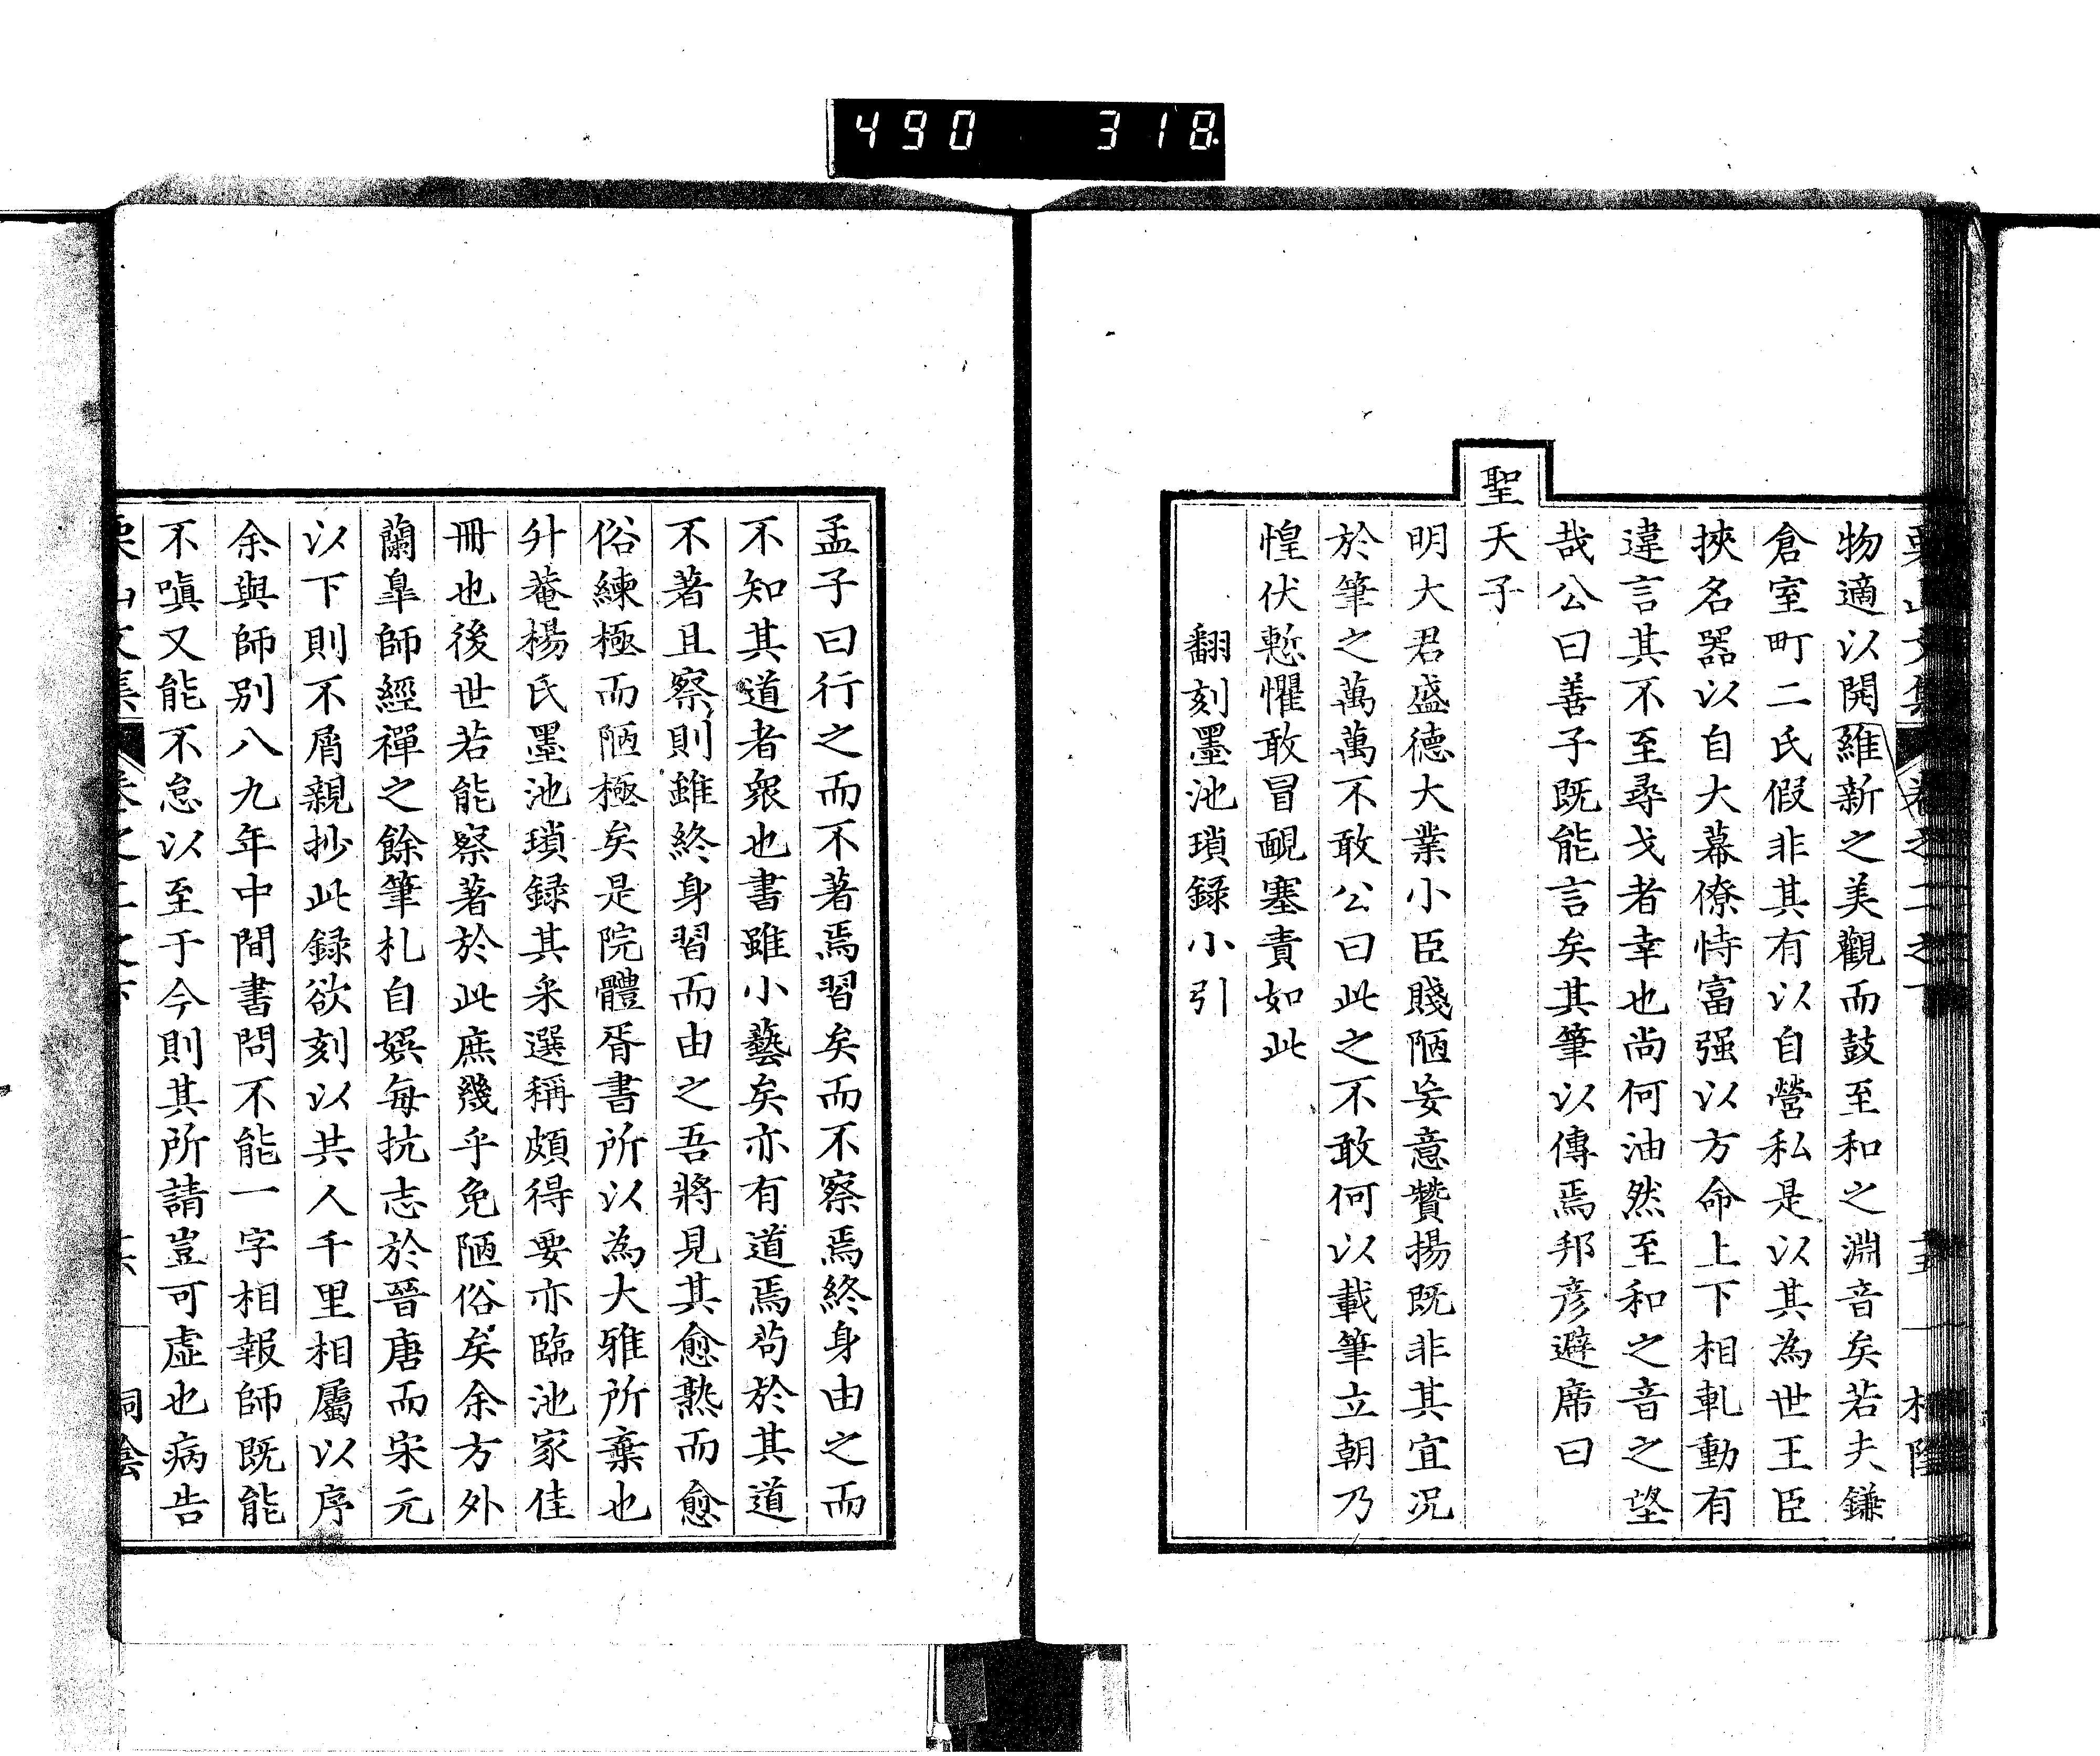 490 318
物適以開維新之美觀而鼓至和之淵音矣若夫鎌
倉室町二氏假非其有以自營私是以其為世王臣
挾名器以自大幕僚恃富强以方命上下相軋動有
違言其不至尋戈者幸也尚何油然至和之音之望
哉公曰善子既能言矣其筆以傳焉邦彦避席曰
聖天子
明大君盛德大業小臣賤陋妄意贊揚既非其宜況
於筆之萬萬不敢公曰此之不敢何以載筆立朝乃
惶伏慙懼敢冒靦塞責如此
翻刻墨池瑣録小引
孟子曰行之而不著焉習矣而不察焉終身由之而
不知其道者衆也書雖小藝矣亦有道焉苟於其道
不著且察則雖終身習而由之吾將見其愈熟而愈
俗練極而陋極矣是院體胥書所以為大雅所棄也
升菴楊氏墨池瑣録其采選稱頗得要亦臨池家佳
冊也後世若能察著於此庶幾乎免陋俗矣余方外
蘭臯師經禪之餘筆札自娯每抗志於晉唐而宋元
以下則不屑親抄此録欲刻以共人千里相屬以序
余與師別八九年中間書問不能一字相報師既能
不嗔又能不怠以至于今則其所請豈可虚也病告